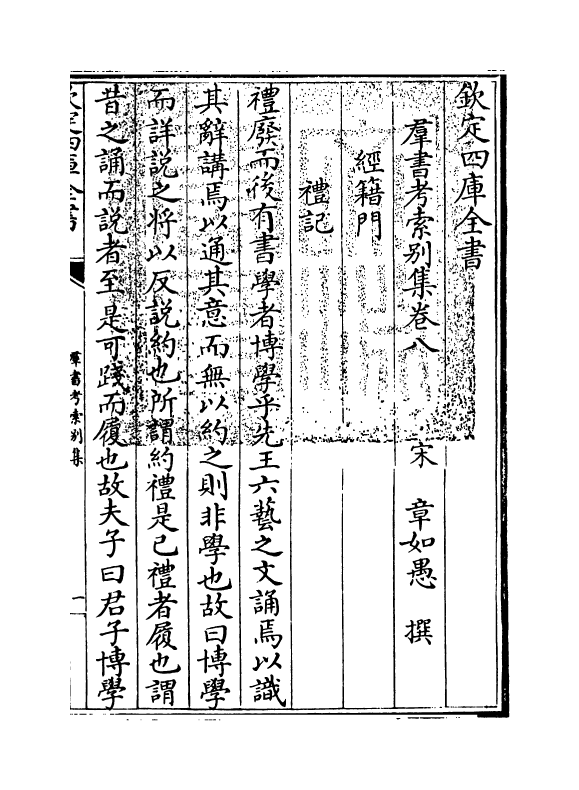 欽定四庫全書
羣書考索别集卷八
宋 章如愚 撰
經籍門
禮記
禮廢而後有書學者博學乎先王六藝之文誦焉以識
其辭講焉以通其意而無以約之則非學也故曰博學
而詳説之将以反説約也所謂約禮是已禮者履也謂
昔之誦而説者至是可踐而履也故夫子曰君子博學
欽定四庫全書
羣書考索别集
一